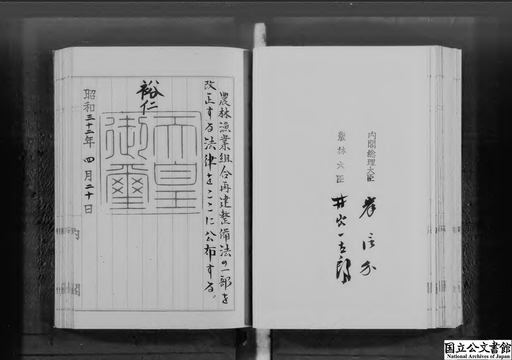 農林漁業組合再建整備法の一部を
改正する法律をここに公布する。
裕仁
天皇
御璽
昭和三十二年四月二十日
内閣
内閣総理大臣 岸信介
農林大臣 井出一太郎
国立公文書館
National Archives of Japan